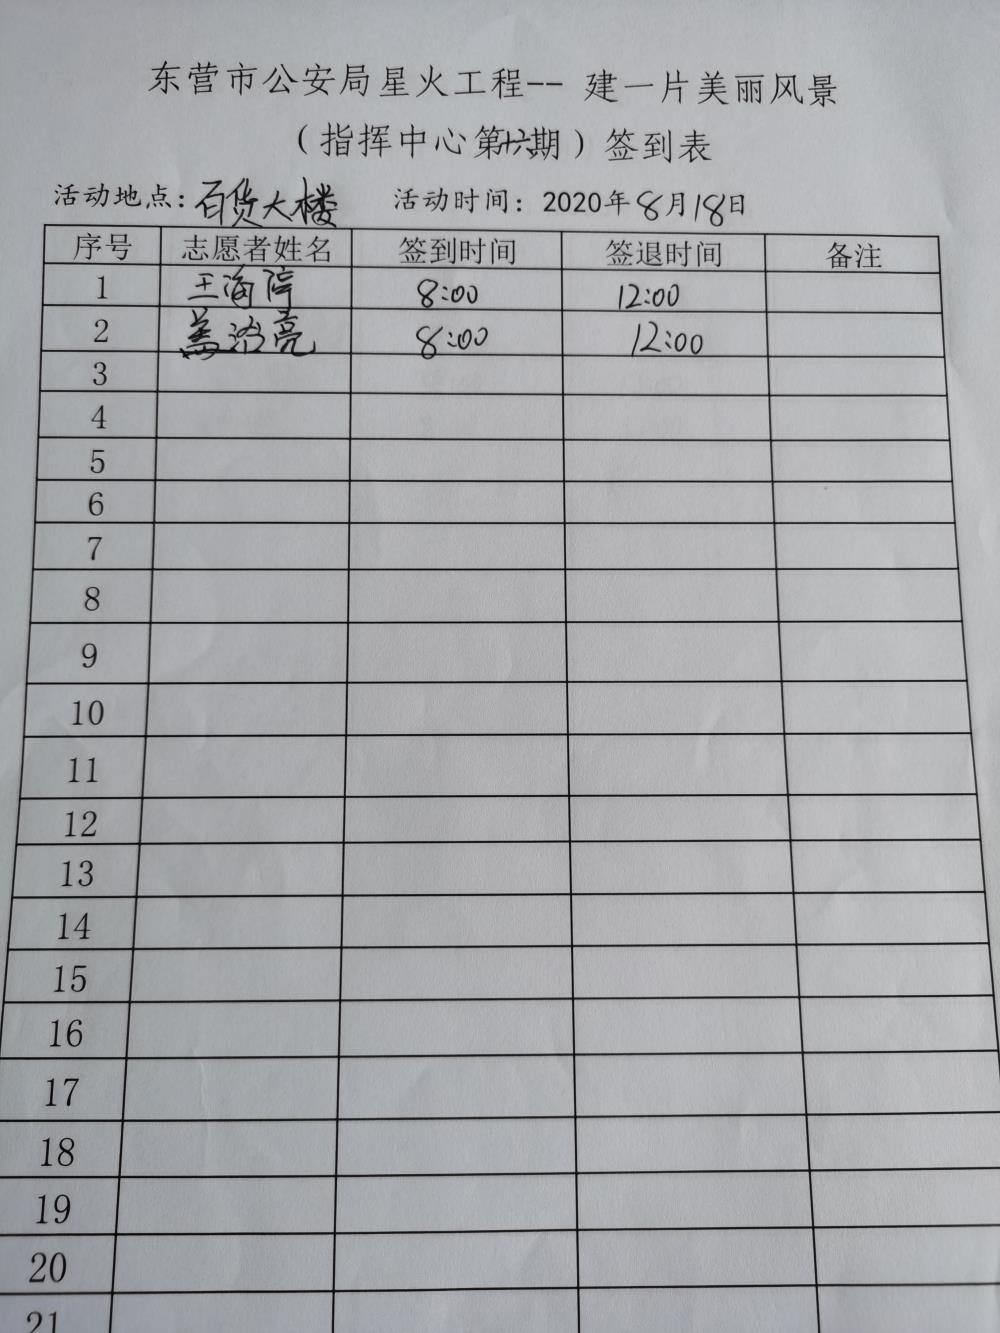 东营市公安局星火工程-- 建一片美丽风景
（指挥中心第十六期）签到表
活动地点：百货大楼 活动时间：2020年8月18日
序号 志愿者姓名 签到时间 签退时间 备注
1 王海 8:00 12:00
2 盖洛亮 8:00 12:00
3
4
5
6
7
8
9
10
11
12
13
14
15
16
17
18
19
20
21